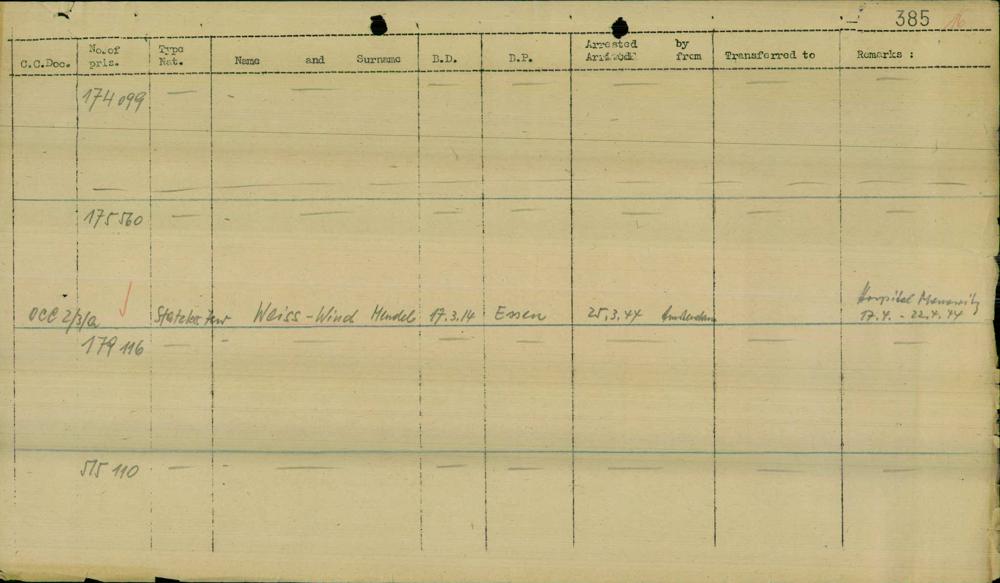 385
C.C.Doc. No.of pris. Type Nat. Name and Surname B.D. D.P. Arrested Arrived by from Transferred to Remarks :
174 099
175 560
Hospital Monowitz
OCC 2/3/a Weiss-Wind Mendel 17.3.14 Essen 25.3.44 Amsterdam 17.4. - 22.4.44
179 116
515 110